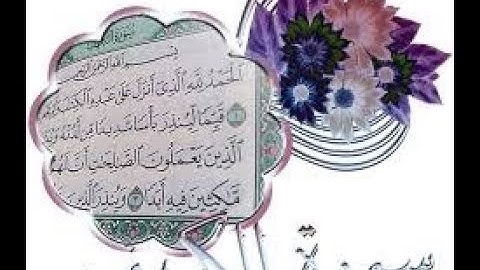 سورة
بِسْمِ اللَّهِ الرَّحْمَٰنِ الرَّحِيمِ
الْحَمْدُ لِلَّهِ الَّذِي أَنزَلَ عَلَىٰ عَبْدِهِ الْكِتَٰبَ وَلَمْ
قَيِّمًا لِّيُنذِرَ بَأْسًا شَدِيدًا مِّن لَّدُنْهُ
الَّذِينَ يَعْمَلُونَ الصَّٰلِحَٰتِ أَنَّ لَهُمْ
مَّٰكِثِينَ فِيهِ أَبَدًا ٣ وَيُنذِرَ الَّذِينَ
سورة